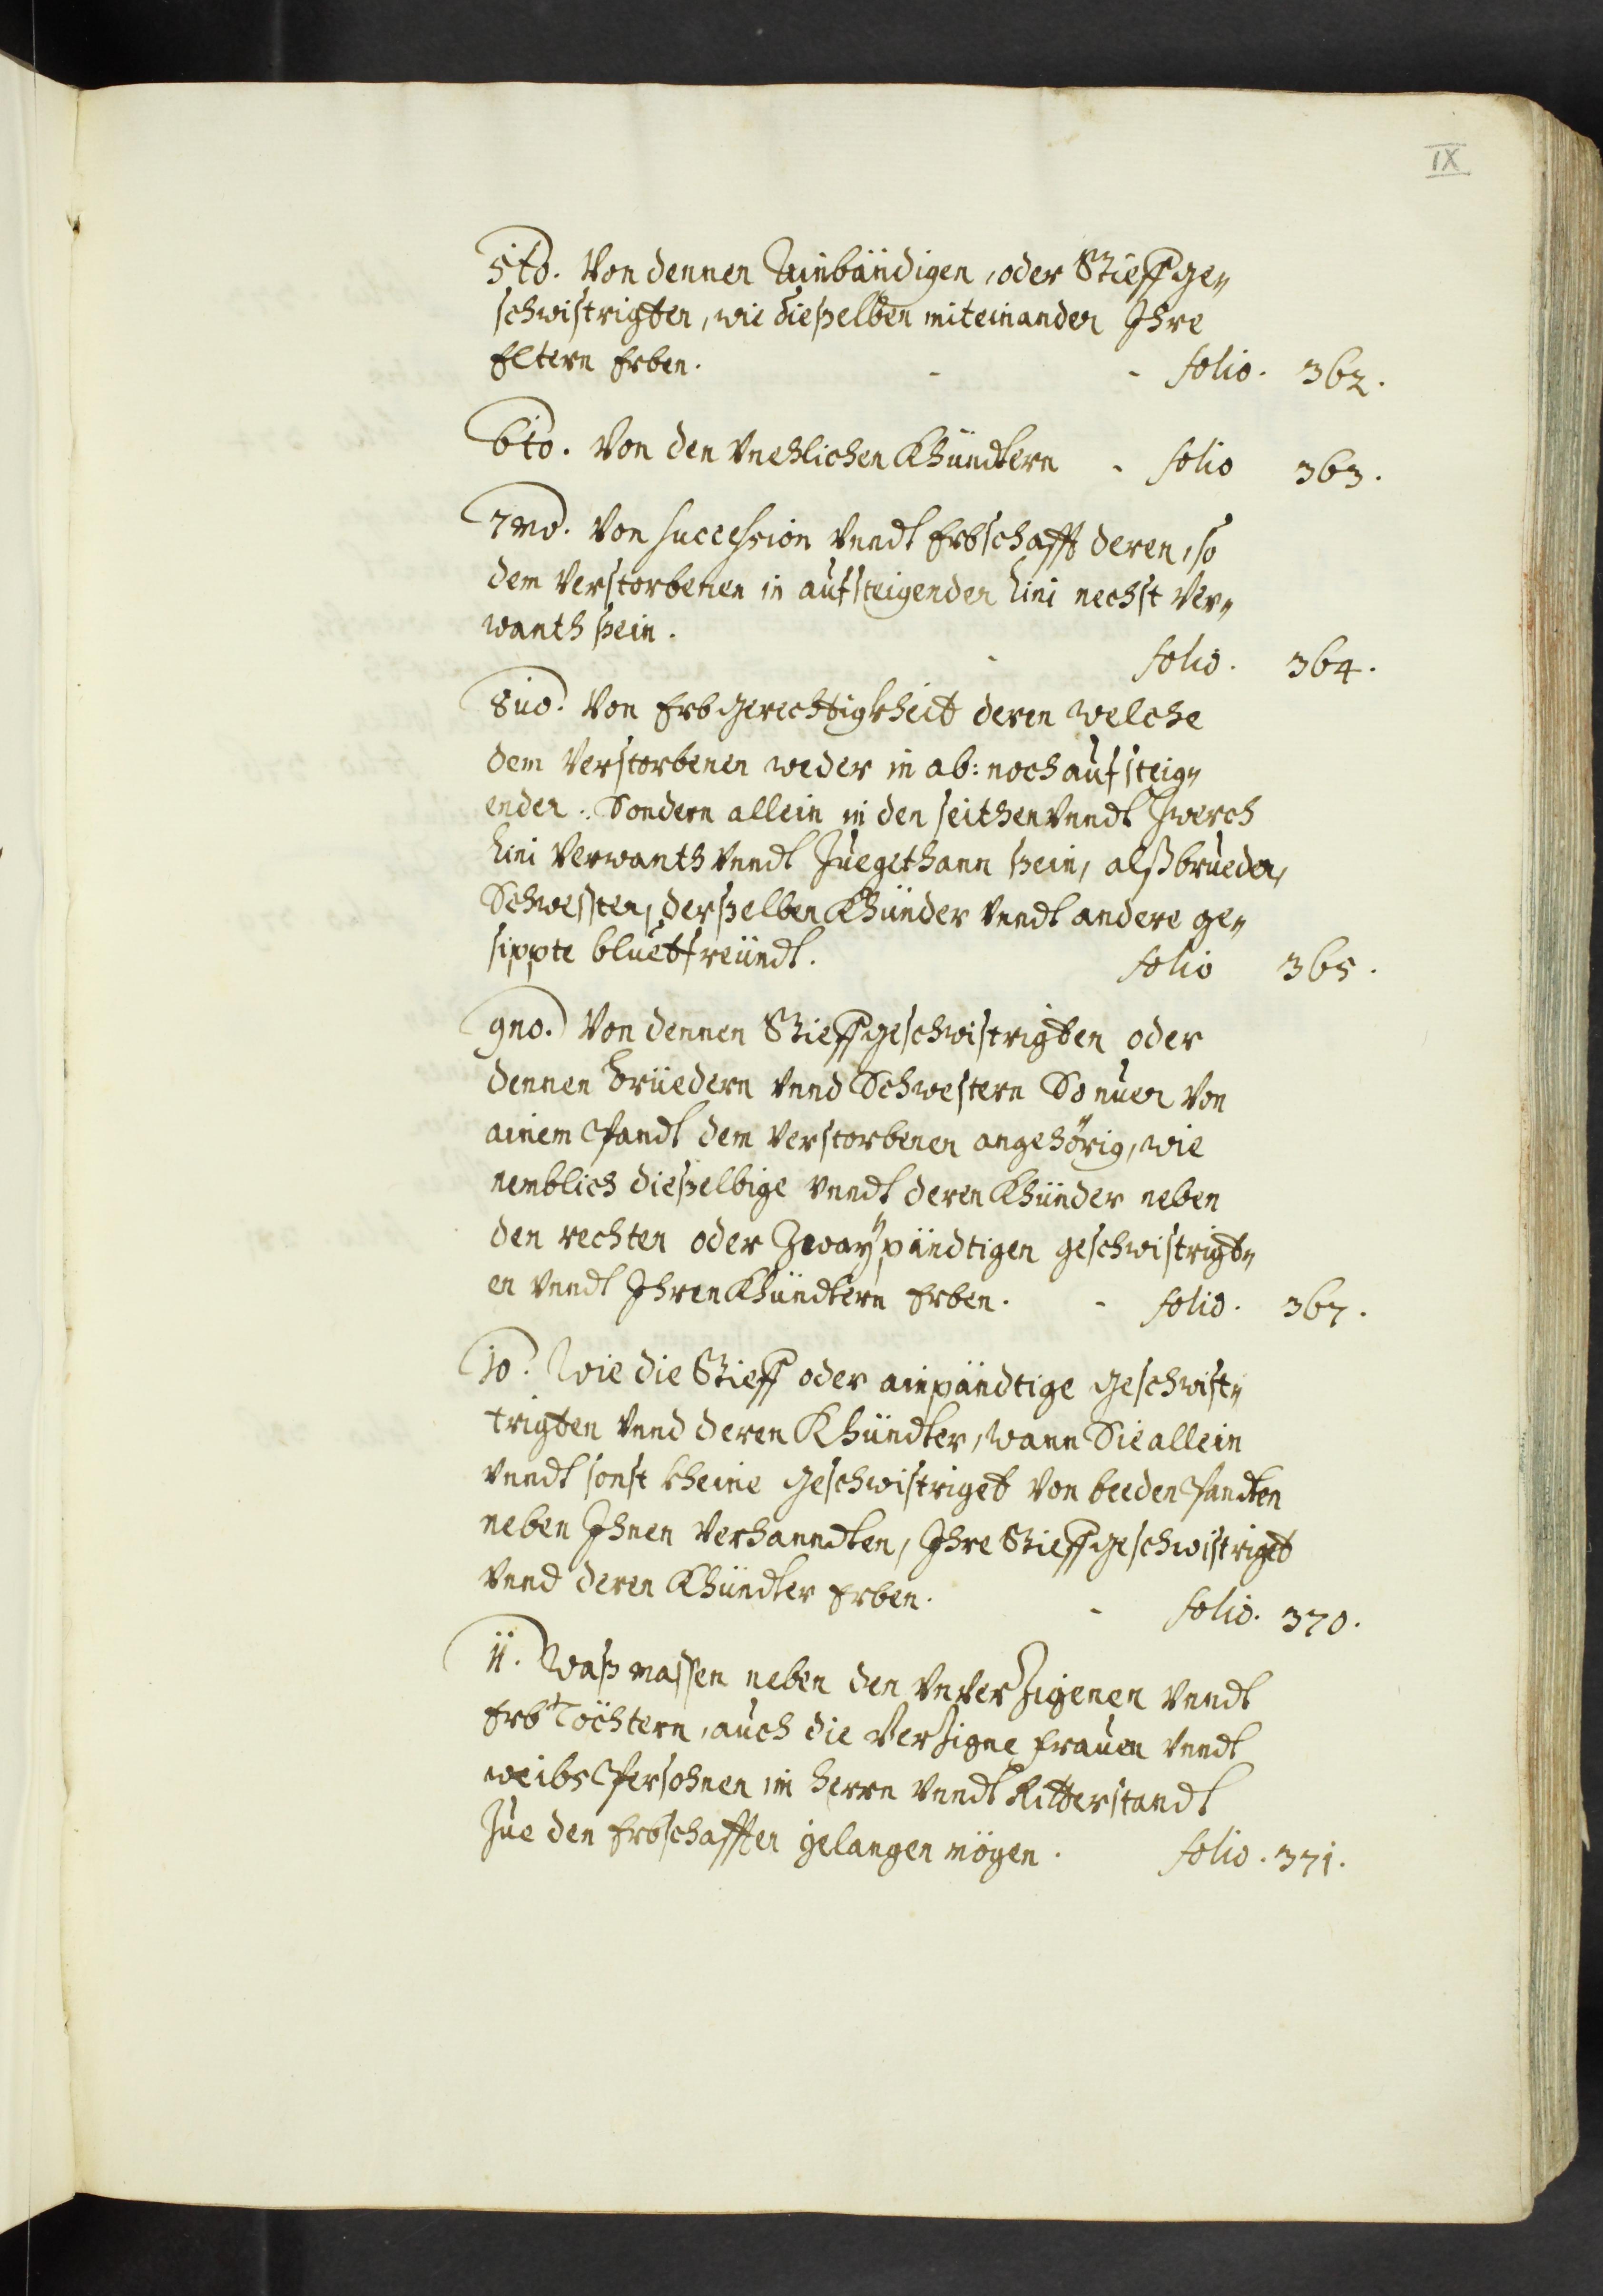 IX
5to. Von dennen Ainbändigen, oder Stieffge„
schwistrigten, wie dießelben miteinander Ihre
Eltern Erben. - - folio. 362.
6to. Von den Vnehlichen Khündtern - folio 363.
7mo. Von succession Vnndt Erbschafft deren, so
dem Verstorbenen in aufsteigender Lini nechst Ver„
wanth sein. - folio. 364.
8uo. Von Erbgerechtigkheit deren welche
dem Verstorbenen weder in ab: noch aufsteig„
ender: Sondern allein in der seithen Vnndt Zwerch
Lini Verwanth Vnndt Zuegethann sein, alß brueder,
Schwester, derselben Khünder Vnndt andere ge„
sippte bluetfreündt. folio 365.
9no. Von dennen Stieffgeschwistrigten oder
dennen brüedern Vnnd Schwestern So nuer Von
ainem Pandt dem Verstorbenen angehörig, wie
nemblich dieselbige Vnndt deren Khünder neben
den rechten oder Zwaypündtigen geschwistrigt„
en Vnndt Ihren Khündtern Erben. - folio. 367.
10. Wie die Stieff oder ainpändtige geschwist„
trigten Vnnd deren Khündter, wann Sie allein
Vnndt sonst kheine geschwistriget Von beeden Pandten
neben Ihnen Verhanndten, Ihre Stieffgeschwistriget
Vnnd deren Khündter Erben. - folio. 370.
11. Waß massen neben den VnVerzigenen Vnndt
Erb Töchtern, auch die Verzigne frauen Vnndt
weibs Persohnen im Herrn Vnndt Ritterstandt
Zue den Erbschafften gelangen mögen. folio. 371.